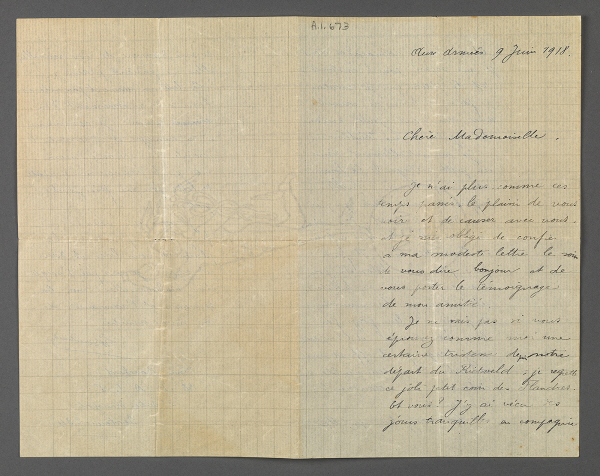 A.I. 673
Aux armées 9 Juin 1918.
Chère Mademoiselle.
Je n'ai plus comme ces
temps passés le plaisir de vous
voir et de causer avec vous
et je suis obligé de confier
à ma modeste lettre le soin
de vous dire bonjour et de
vous porter le témoignage
de mon amitié.
Je ne sais pas si vous
éprouvez comme moi une
certaine tristesse depuis notre
départ du Rietveld, je regrette
ce joli petit coin des Flandres.
Et vous? J'y ai vécu des
jours tranquilles en compagnie